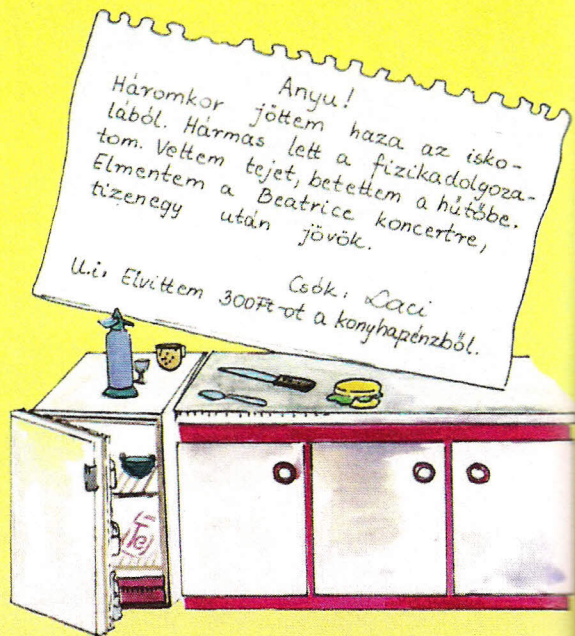 Anyu!
Háromkor jöttem haza az isko-
lából. Hármas lett a fizikadolgoza-
tom. Vettem tejet, betettem a hűtőbe.
Elmentem a Beatrice koncertre,
tizenegy után jövök.
Csók: Laci
U.i. Elvittem 300Ft-ot a konyhapénzből.
Tej